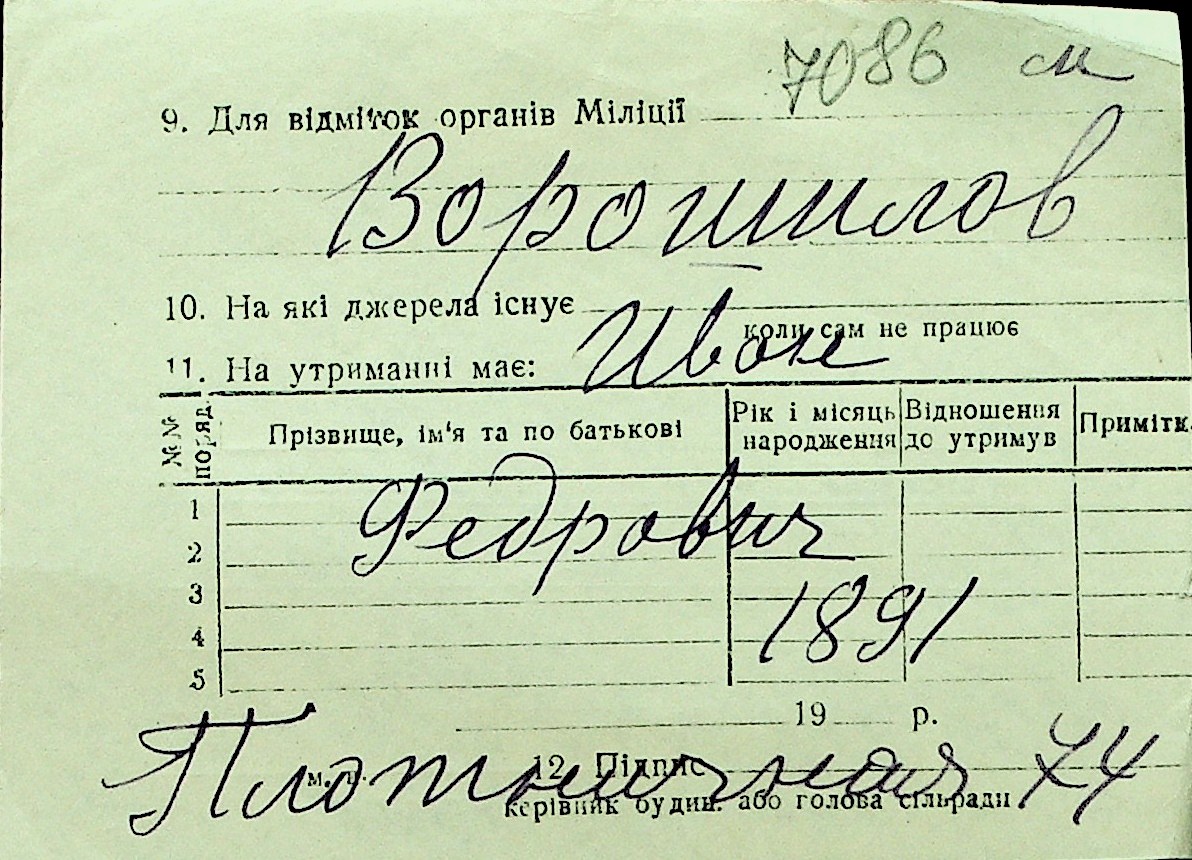 7086 см
9. Для відміток органів Міліції
Ворошилов
10. На які джерела існує
коли сам не працює
Иван
11. На утриманні має:
№№ поряд.
Прізвище, ім'я та по батькові
Рік і місяць народження
Відношення до утримув
Примітк.
Федрович
1
2
3
4
5
1891
19 р.
м. п.
12. Підпис
Плотничная 74
керівник будин. або голова сільради